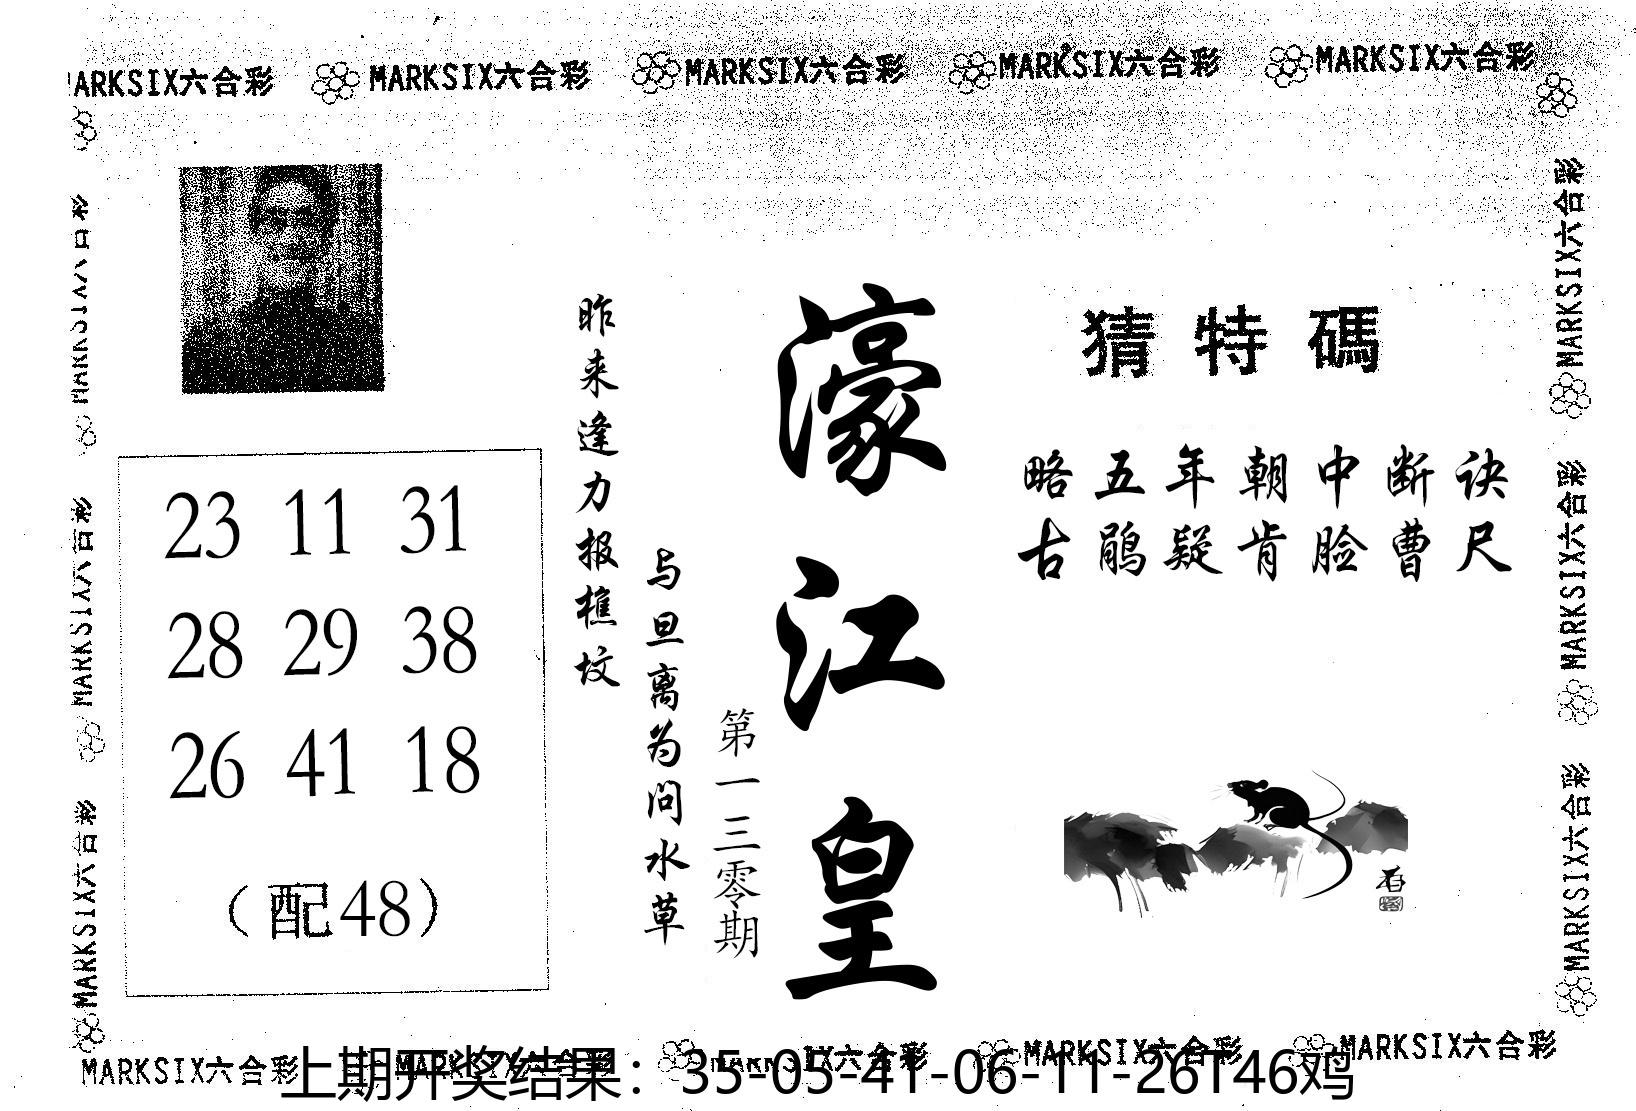 MARKSIX六合彩 MARKSIX六合彩 MARKSIX六合彩 MARKSIX六合彩 MARKSIX六合彩
MARKSIX六合彩
MARKSIX六合彩
MARKSIX六合彩
濠江皇
第一三零期
昨来逢力报樵坟
与旦离为问水草
猜特碼
略五年朝中断诀
古鹃疑肯脸曹尺
23 11 31
28 29 38
26 41 18
（配48）
MARKSIX六合彩
MARKSIX六合彩
MARKSIX六合彩
MARKSIX六合彩 MARKSIX六合彩 MARKSIX六合彩 MARKSIX六合彩 MARKSIX六合彩
上期开奖结果：35-05-41-06-11-26T46鸡